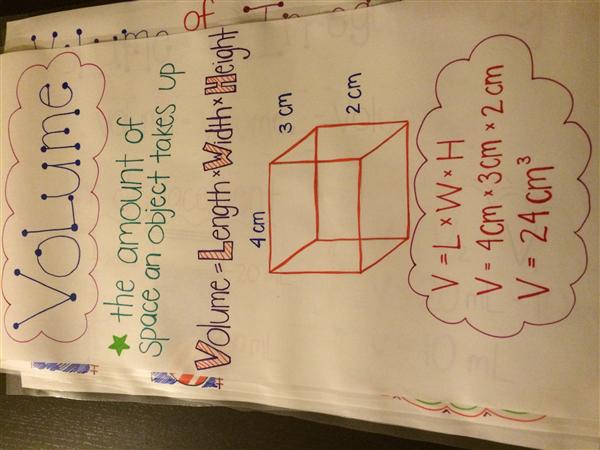 VoLume
the amount of
space an object takes up
Volume = Length × Width × Height
4 cm
3 cm
2 cm
V = L × W × H
V = 4cm × 3cm × 2cm
V = 24 cm³